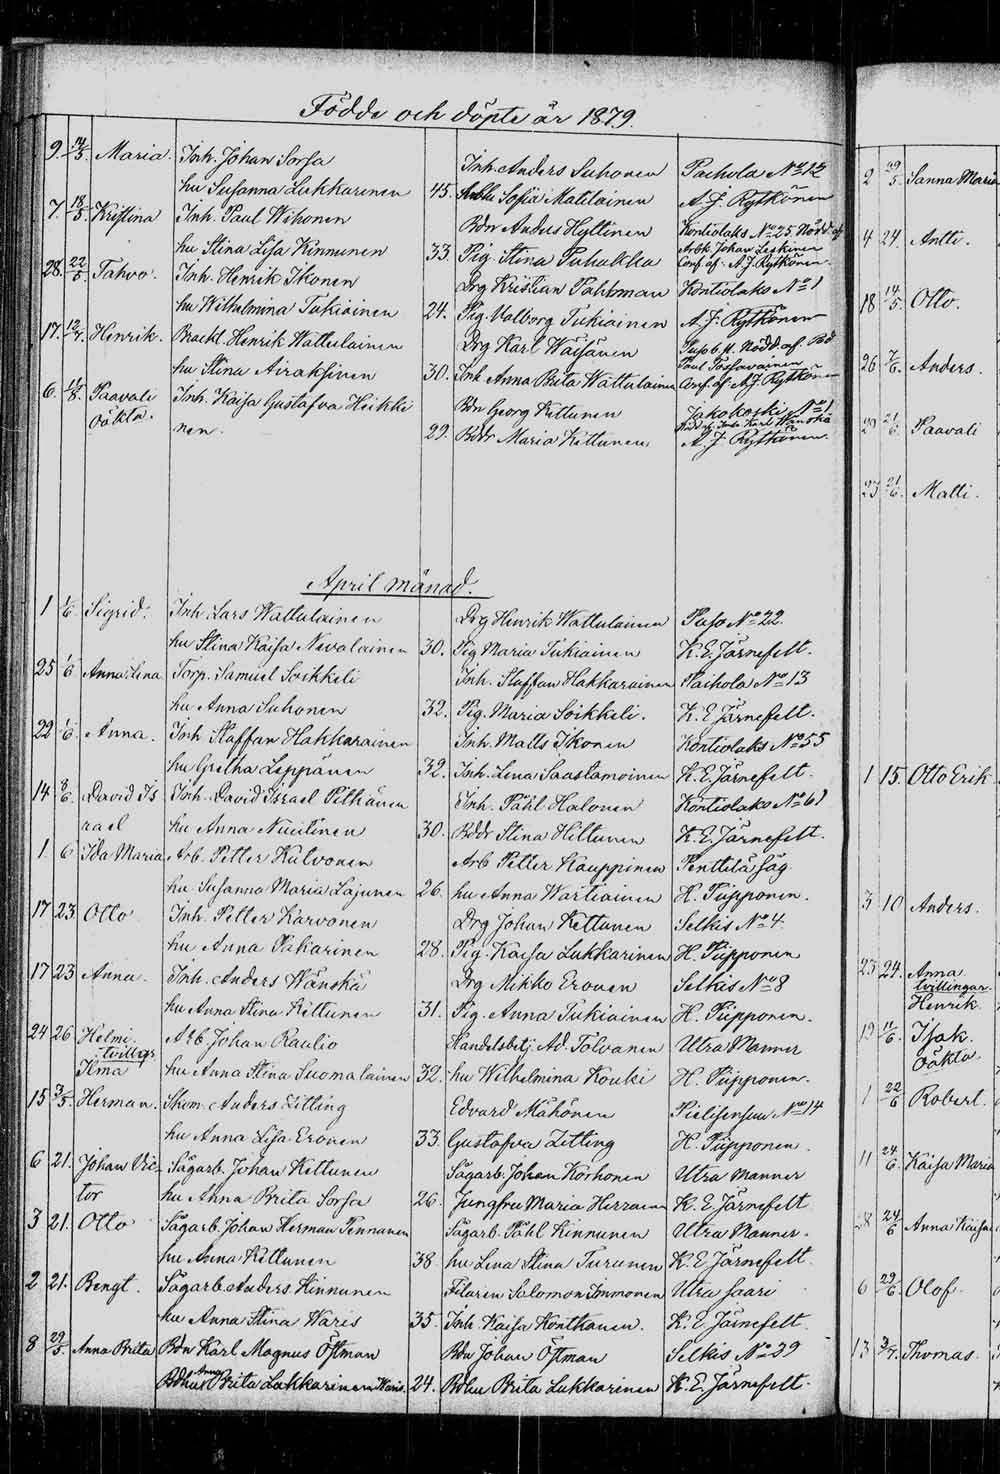 Födde och döpte år 1879.
9. 14/5. Maria. Inh. Johan Sorsa Inh. Anders Suhonen Paihola No 12
hu Susanna Lukkarinen 45. Sofia Matilainen A. J. Rytkönen
7. 18/5. Kristina Inh. Paul Wihonen Bdn Anders Hyttinen Kontiolaks No 25 Nödd. af
hu Stina Lisa Kinnunen 33. Pig. Stina Puhakka Arbk. Johan Leskinen
Conf. af A. J. Rytkönen
28. 22/5. Tahvo. Inh. Henrik Ikonen Drg Kristian Pahlman Kontiolaks No 1
hu Wilhelmina Tukiainen 24. Pig. Valborg Tukiainen A. J. Rytkönen
17. 12/7. Henrik. Brackl. Henrik Wattulainen Drg Karl Wäisänen Nödd. af
hu Stina Airaksinen 30. Inh. Anna Brita Wattulainen Conf. af A. J. Rytkönen
6. Paavali Inh. Kaisa Gustafva Heikki Bdn Georg Kettunen Jakokoski No 1
oäkta. nen. 29. Bddr Maria Kettunen Nödd af Inh. Karl Wänskä
A. J. Rytkönen.
April månad.
1 1/6 Sigrid. Inh. Lars Wattulainen Drg Henrik Wattulainen Puso No 22.
hu Stina Kaisa Nevalainen 30. Pig Maria Tukiainen K. E. Järnefelt.
25 1/6 Anna Lena Torp. Samuel Soikkeli Inh. Staffan Hakkarainen Paihola No 13
hu Anna Suhonen 32. Pig. Maria Soikkeli. K. E. Järnefelt.
22 1/6. Anna. Inh Staffan Hakkarainen Inh. Matts Ikonen Kontiolaks No 55
hu Gretha Leppänen 32. Inh. Lena Saastamoinen K. E. Järnefelt.
14 8/6. David Is Inh. David Israel Pelkänen Inh. Påhl Halonen Kontiolaks No 61
rael hu Anna Nuutinen 30. Bddr Stina Hiltunen K. E. Järnefelt.
1. 6. Ida Maria Arb. Petter Kulvonen Arb Petter Kauppinen Penttilä såg.
hu Susanna Maria Lajunen 26. hu Anna Wartiainen H. Piipponen.
17 23. Otto Inh. Petter Karvonen Drg Johan Kettunen Selkis No 4.
hu Anna Pakarinen 28. Pig. Kaisa Lukkarinen H. Piipponen
17 23 Anna. Inh. Anders Wänskä Drg Mikko Eronen Selkis No 8
hu Anna Stina Kettunen 31. Pig. Anna Tukiainen H. Piipponen.
24 26 Helmi Arb. Johan Raulio Handelsbetj. Ad. Tolvanen Utra Manner
tvillgr
Ilma hu Anna Stina Suomalainen 32. hu Wilhelmina Kouki H. Piipponen.
15 3/5. Herman. Skom. Anders Zitting Edvard Mähönen Pielisensuu No 14
hu Anna Lisa Eronen 33. Gustafva Zitting H. Piipponen.
6 21. Johan Vic- Sågarb. Johan Kettunen Sågarb. Johan Korhonen Utra Manner
tor hu Anna Brita Sorsa 26. Jungfru Maria K. E. Järnefelt
3 21. Otto Sågarb. Johan Herman Pennanen Sågarb. Påhl Kinnunen Utra Manner.
hu Anna Kettunen 38. hu Lena Stina Turunen K. E. Järnefelt.
2 21. Bengt. Sågarb. Anders Kinnunen Filaren Salomon Immonen Utra Saari
hu Anna Stina Waris 35. Inh. Kaisa Kontkanen. K. E. Järnefelt.
8 29/5. Anna Brita Bdn Karl Magnus Östman Bdn Johan Östman Selkis No 39
Bdhu Anna Brita Lukkarinen Waris. 24. Bdhu Brita Lukkarinen K. E. Järnefelt.
2 29/5. Sanna Maria
4 24. Antti.
18 14/5 Otto.
26 7/6. Anders.
29 21/6 Paavali
23 21/6. Matti.
1 15. Otto Erik
3 10 Anders.
23 24. Anna
tvillingar.
Henrik
19 11/6. Isak.
oäkta
1 22/6 Robert.
11 24/6. Kaisa Maria
28 24/6 Anna Kaisa
6 29/6. Olof.
13 3/7. Thomas.